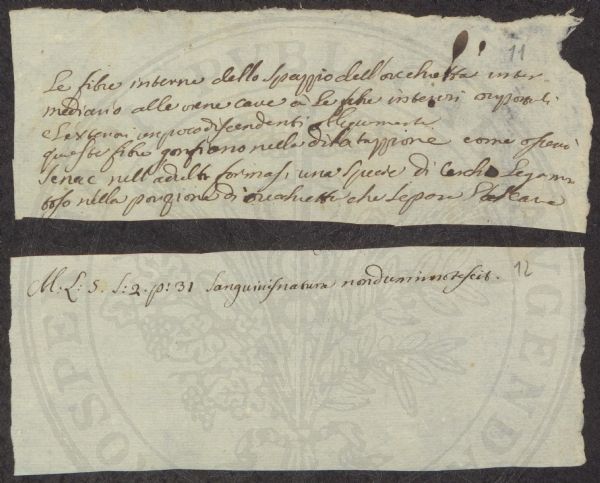 11
Le fibre interne dello spazzio dell'orechietta inter
mediario alle vene cave
e l'esterni un poco discendenti
queste fibre gonfiano nella dilatazzione come osservò
Senac nell'adulti formasi una specie di Cerchio Legamen
toso nella porzione di orechietta che
12
M: L: 5. S: 2. p: 31 Sanguinis natura nondum innotescit.